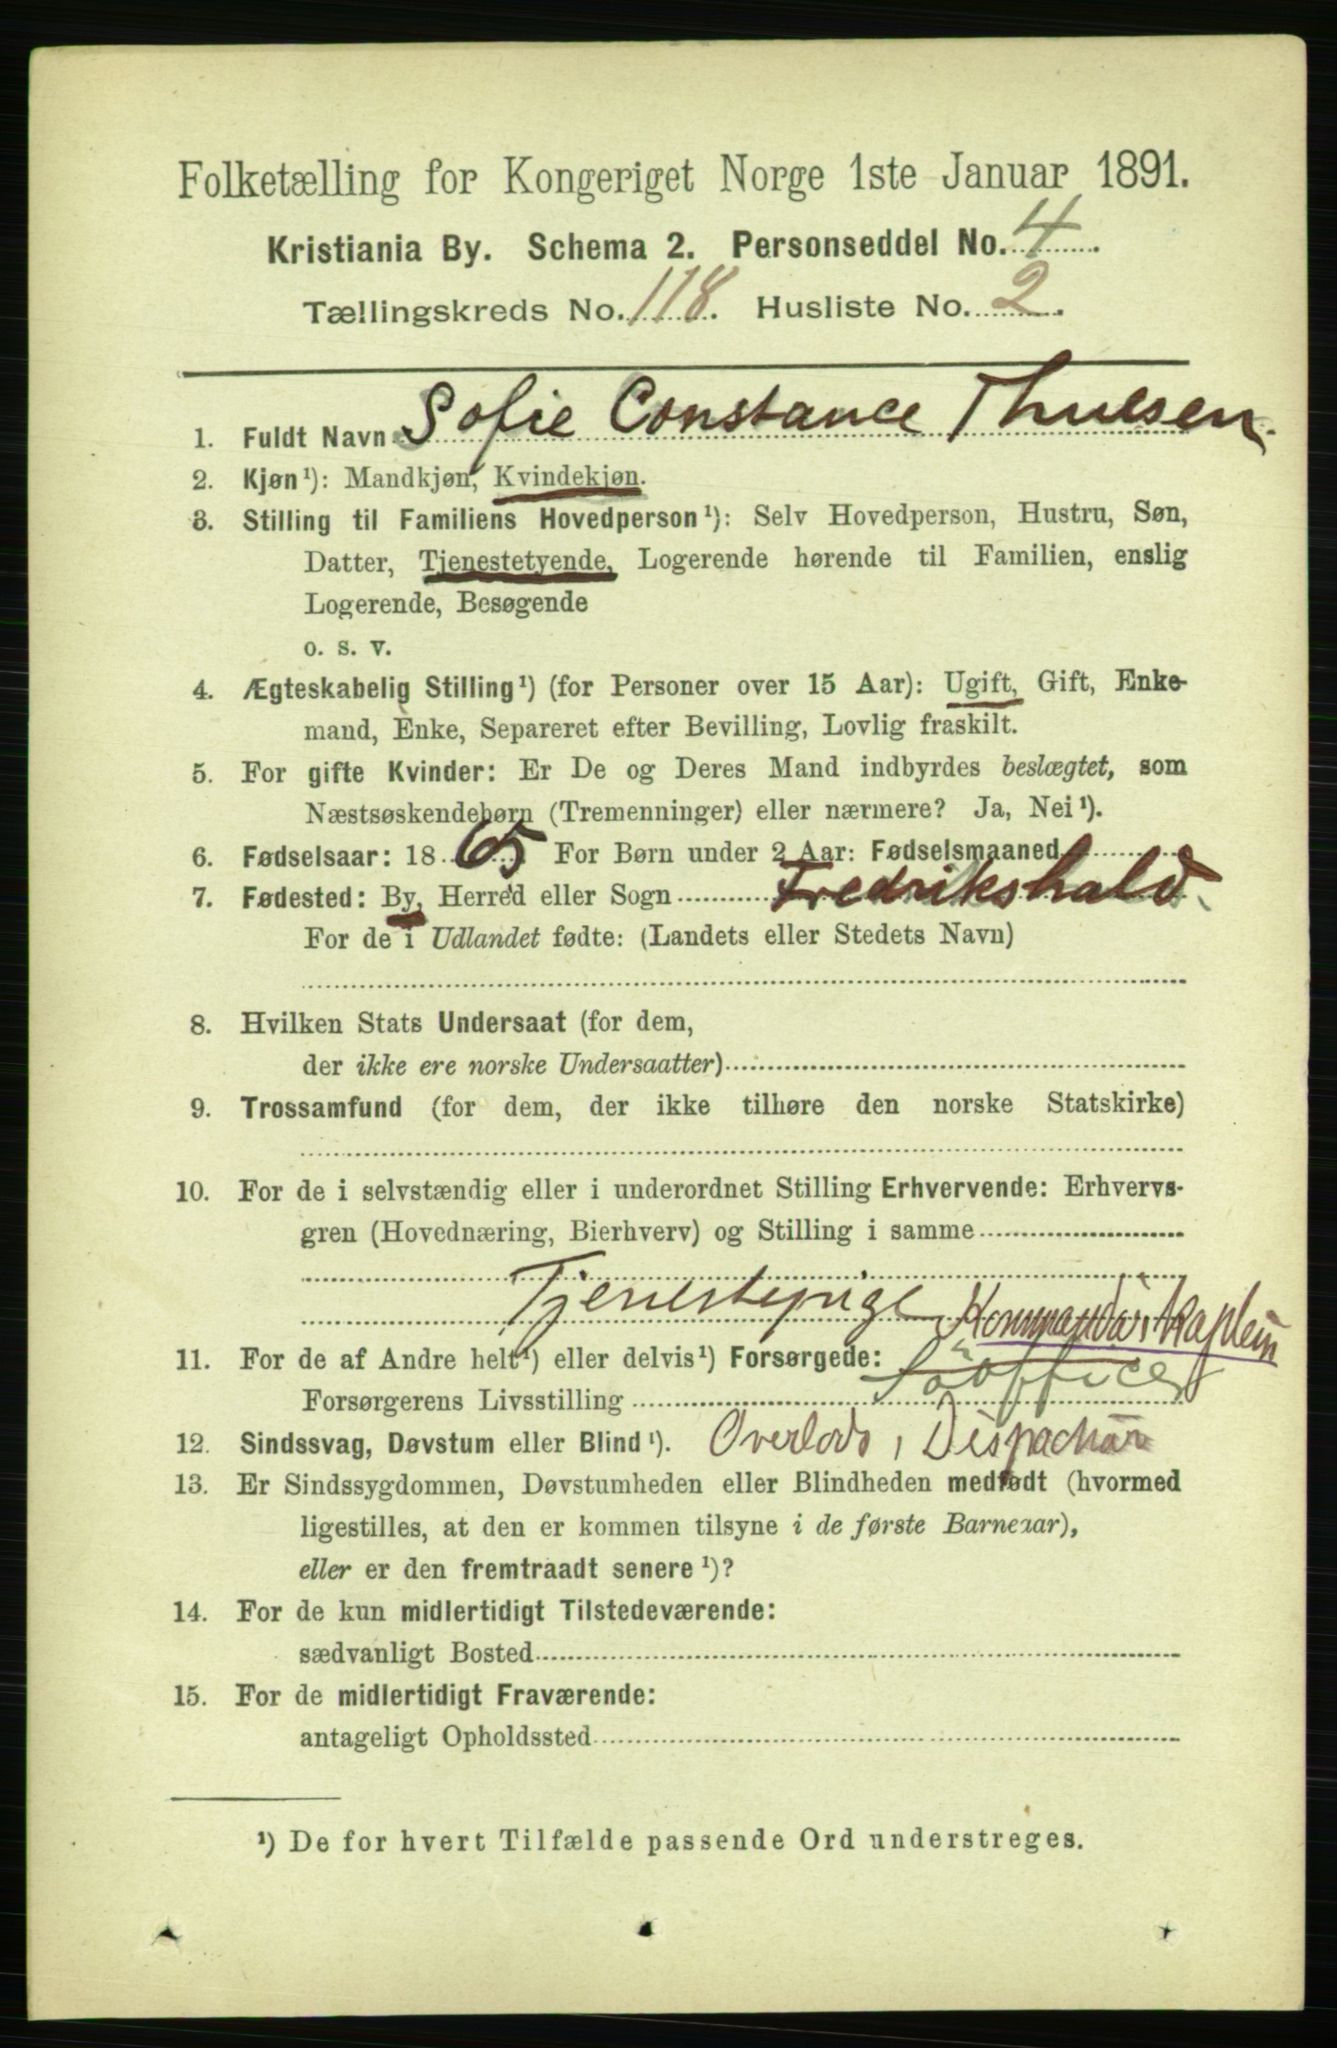 Folketælling for Kongeriget Norge 1ste Januar 1891.
Kristiania By. Schema 2. Personseddel No. 4
Tællingskreds No. 118. Husliste No. 2.
1. Fuldt Navn Sofie Constance Thuesen.
2. Kjøn¹): Mandkjøn, Kvindekjøn.
3. Stilling til Familiens Hovedperson¹): Selv Hovedperson, Hustru, Søn,
Datter, Tjenestetyende, Logerende hørende til Familien, enslig
Logerende, Besøgende
o. s. v.
4. Ægteskabelig Stilling¹) (for Personer over 15 Aar): Ugift, Gift, Enke-
mand, Enke, Separeret efter Bevilling, Lovlig fraskilt.
5. For gifte Kvinder: Er De og Deres Mand indbyrdes beslægtet, som
Næstsøskendebørn (Tremenninger) eller nærmere? Ja, Nei¹).
6. Fødselsaar: 1865. For Børn under 2 Aar: Fødselsmaaned
7. Fødested: By, Herred eller Sogn Fredrikshald.
For de i Udlandet fødte: (Landets eller Stedets Navn)
8. Hvilken Stats Undersaat (for dem,
der ikke ere norske Undersaatter)
9. Trossamfund (for dem, der ikke tilhøre den norske Statskirke)
10. For de i selvstændig eller i underordnet Stilling Erhvervende: Erhvervs-
gren (Hovednæring, Bierhverv) og Stilling i samme
Tjenestepige Kommandørkaptein
11. For de af Andre helt¹) eller delvis¹) Forsørgede:
Forsørgerens Livsstilling Søofficer
12. Sindssvag, Døvstum eller Blind¹). Overlods, Dispachør
13. Er Sindssygdommen, Døvstumheden eller Blindheden medfødt (hvormed
ligestilles, at den er kommen tilsyne i de første Barneaar),
eller er den fremtraadt senere¹)?
14. For de kun midlertidigt Tilstedeværende:
sædvanligt Bosted
15. For de midlertidigt Fraværende:
antageligt Opholdssted
¹) De for hvert Tilfælde passende Ord understreges.